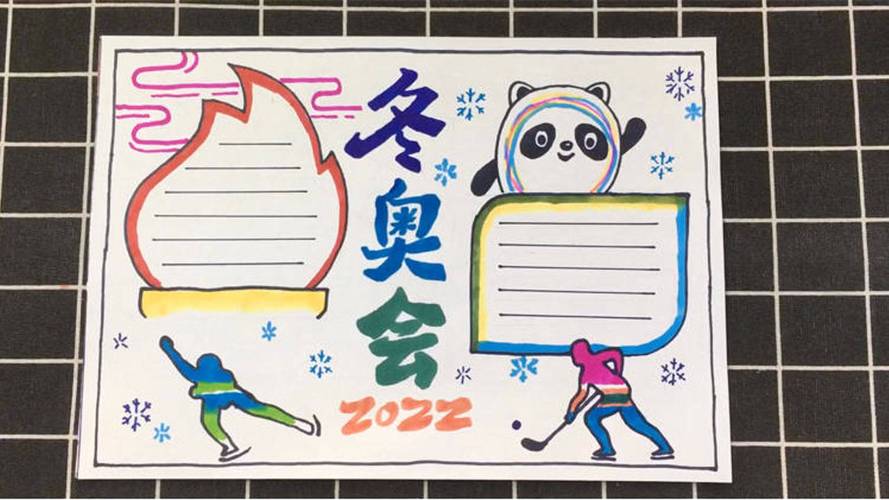 冬
奥
会
2022